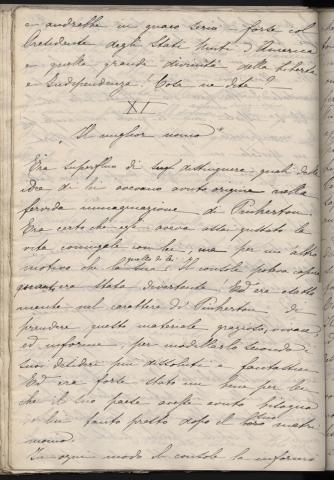 e andrebbe in guaio serio - forte col
Presidente degli Stati Uniti d'America
e quella grande divinità della libertà
e Indipendenza! Cosa ne dite? -
XI
"Il miglior uomo"
Era superfluo di distinguere quali delle
idee di lei avevano avuto origine nella
fervida immaginazione di Pinkerton.
Era certo che egli aveva
vita coniugale con lei, ma per un altro
motivo che la sua quella di lei. Il console poteva capire
quanto era stata divertente. Ed era esatta
mente nel carattere di Pinkerton di
prendere questo materiale grazioso, vivace,
ed informe, per modellarlo secondo i
suoi desideri più dissoluti e fantastici.
Ed era forse stato un bene per lei
che il suo paese avesse avuto bisogna
di lui tanto presto dopo il loro suo matri
monio.
In ogni modo il console la informò